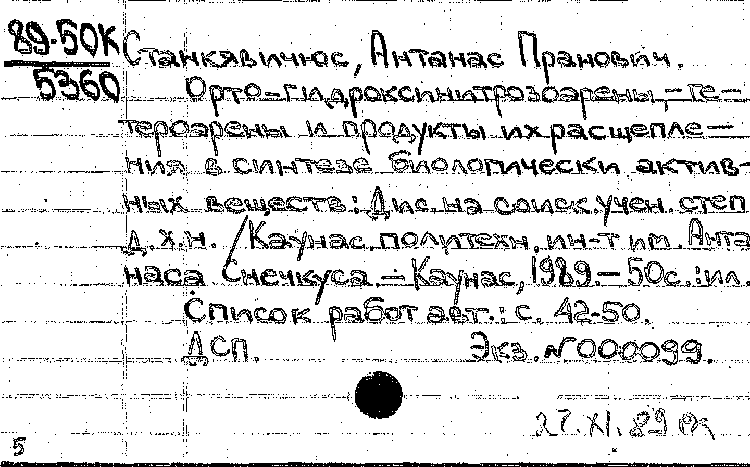 89-50К
5360
Станкявичюс, Антанас Пранович.
Орто-гидроксинитрозоарены, -ге-
тероарены и продукты их расщепле-
ния в синтезе биологически актив-
ных веществ: Дис. на соиск. учен. степ
д.х.н. / Каунас. политехн. ин-т им. Анта
наса Снечкуса. - Каунас, 1989. - 50с.: ил.
Список работ авт.: с. 42-50.
ДСП. Экз. №000099.
27.XI.89
5